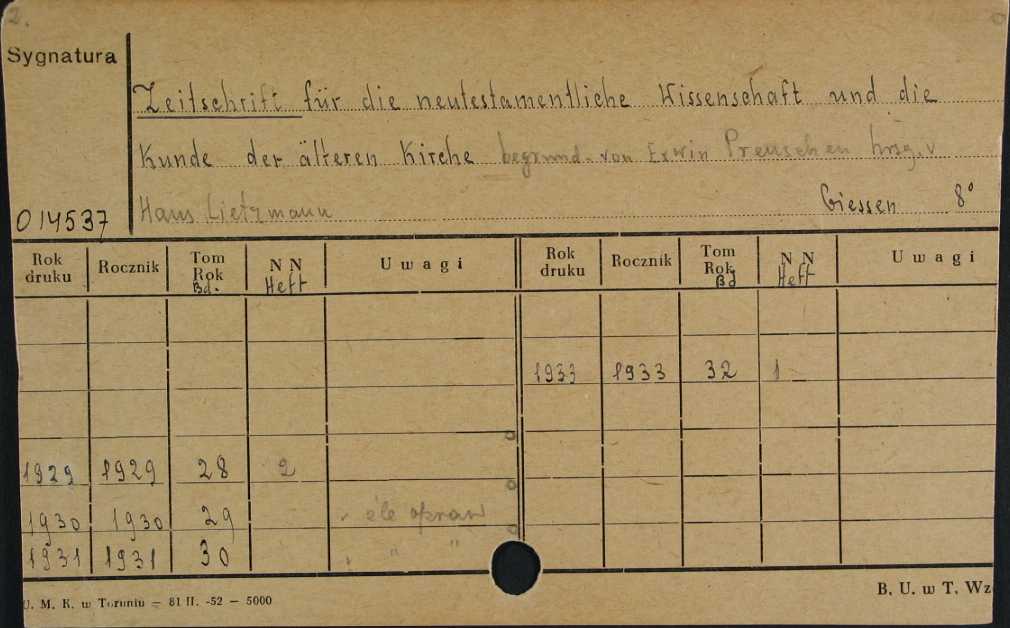 2.
Sygnatura
Zeitschrift für die neutestamentliche Wissenschaft und die
Kunde der älteren Kirche begründ. von Erwin Preuschen hrsg. v
Hans Lietzmann Giessen 8°
014537
Rok druku Rocznik Tom Rok Bd. N N Heft Uwagi Rok druku Rocznik Tom Rok Bd N N Heft Uwagi
1933 1933 32 1
1929 1929 28 2
1930 1930 29 źle opraw
1931 1931 30 " "
U. M. K. w Toruniu – 81 II. -52 – 5000
B. U. w T. Wz